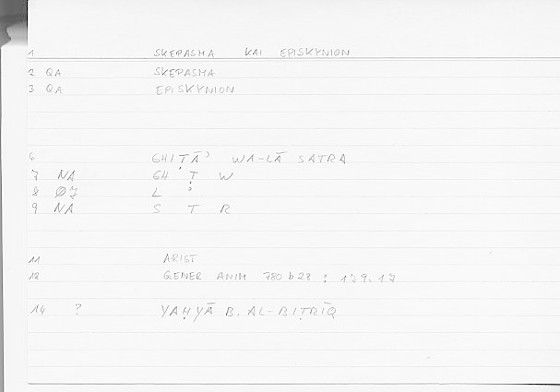 1 SKEPASMA KAI EPISKYNION
2 QA SKEPASMA
3 QA EPISKYNION
6 GHIṬĀʾ WA-LĀ SATRA
7 NA GH Ṭ W
8 Ø7 L ʾ
9 NA S T R
11 ARIST
12 GENER ANIM 780 b 28 : 179.17
14 ? YAḤYĀ B. AL-BIṬRĪQ